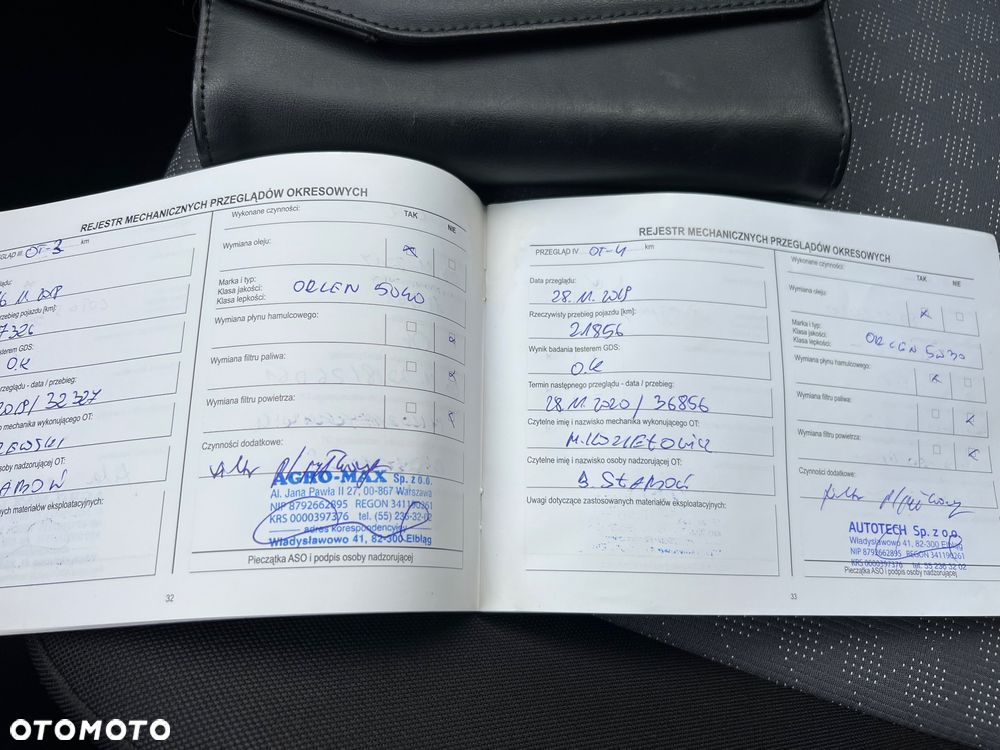 REJESTR MECHANICZNYCH PRZEGLĄDÓW OKRESOWYCH
GLĄD III OT-3 km
11.2018
zebieg pojazdu [km]:
7326
esterem GDS:
O.K
przeglądu - data / przebieg:
2019/ 32 327
o mechanika wykonującego OT:
osoby nadzorującej OT:
nych materiałów eksploatacyjnych:
Wykonane czynności:
TAK
NIE
Wymiana oleju:
Marka i typ:
Klasa jakości:
Klasa lepkości:
ORLEN 5W30
Wymiana płynu hamulcowego:
Wymiana filtru paliwa:
Wymiana filtru powietrza:
Czynności dodatkowe:
AGRO-MAX Sp. z o.o.
Al. Jana Pawła II 27, 00-867 Warszawa
NIP 8792662895 REGON 341190261
KRS 0000397376 tel. (55) 236-32-02
adres korespondencyjny
Władysławowo 41, 82-300 Elbląg
Pieczątka ASO i podpis osoby nadzorującej
32
REJESTR MECHANICZNYCH PRZEGLĄDÓW OKRESOWYCH
PRZEGLĄD IV OT-4 km
Data przeglądu:
28.11.2019
Rzeczywisty przebieg pojazdu [km]:
21856
Wynik badania testerem GDS:
O.K
Termin następnego przeglądu - data / przebieg:
28.11.2020/36856
Czytelne imię i nazwisko mechanika wykonującego OT:
Czytelne imię i nazwisko osoby nadzorującej OT:
Uwagi dotyczące zastosowanych materiałów eksploatacyjnych:
Wykonane czynności:
TAK
NIE
Wymiana oleju:
Marka i typ:
Klasa jakości:
Klasa lepkości:
ORLEN 5W30
Wymiana płynu hamulcowego:
Wymiana filtru paliwa:
Wymiana filtru powietrza:
Czynności dodatkowe:
AUTOTECH Sp. z o.o.
Władysławowo 41, 82-300 Elbląg
NIP 8792662895 REGON 341190261
KRS 0000397376 tel. 55 236 32 02
Pieczątka ASO i podpis osoby nadzorującej
33
OTOMOTO